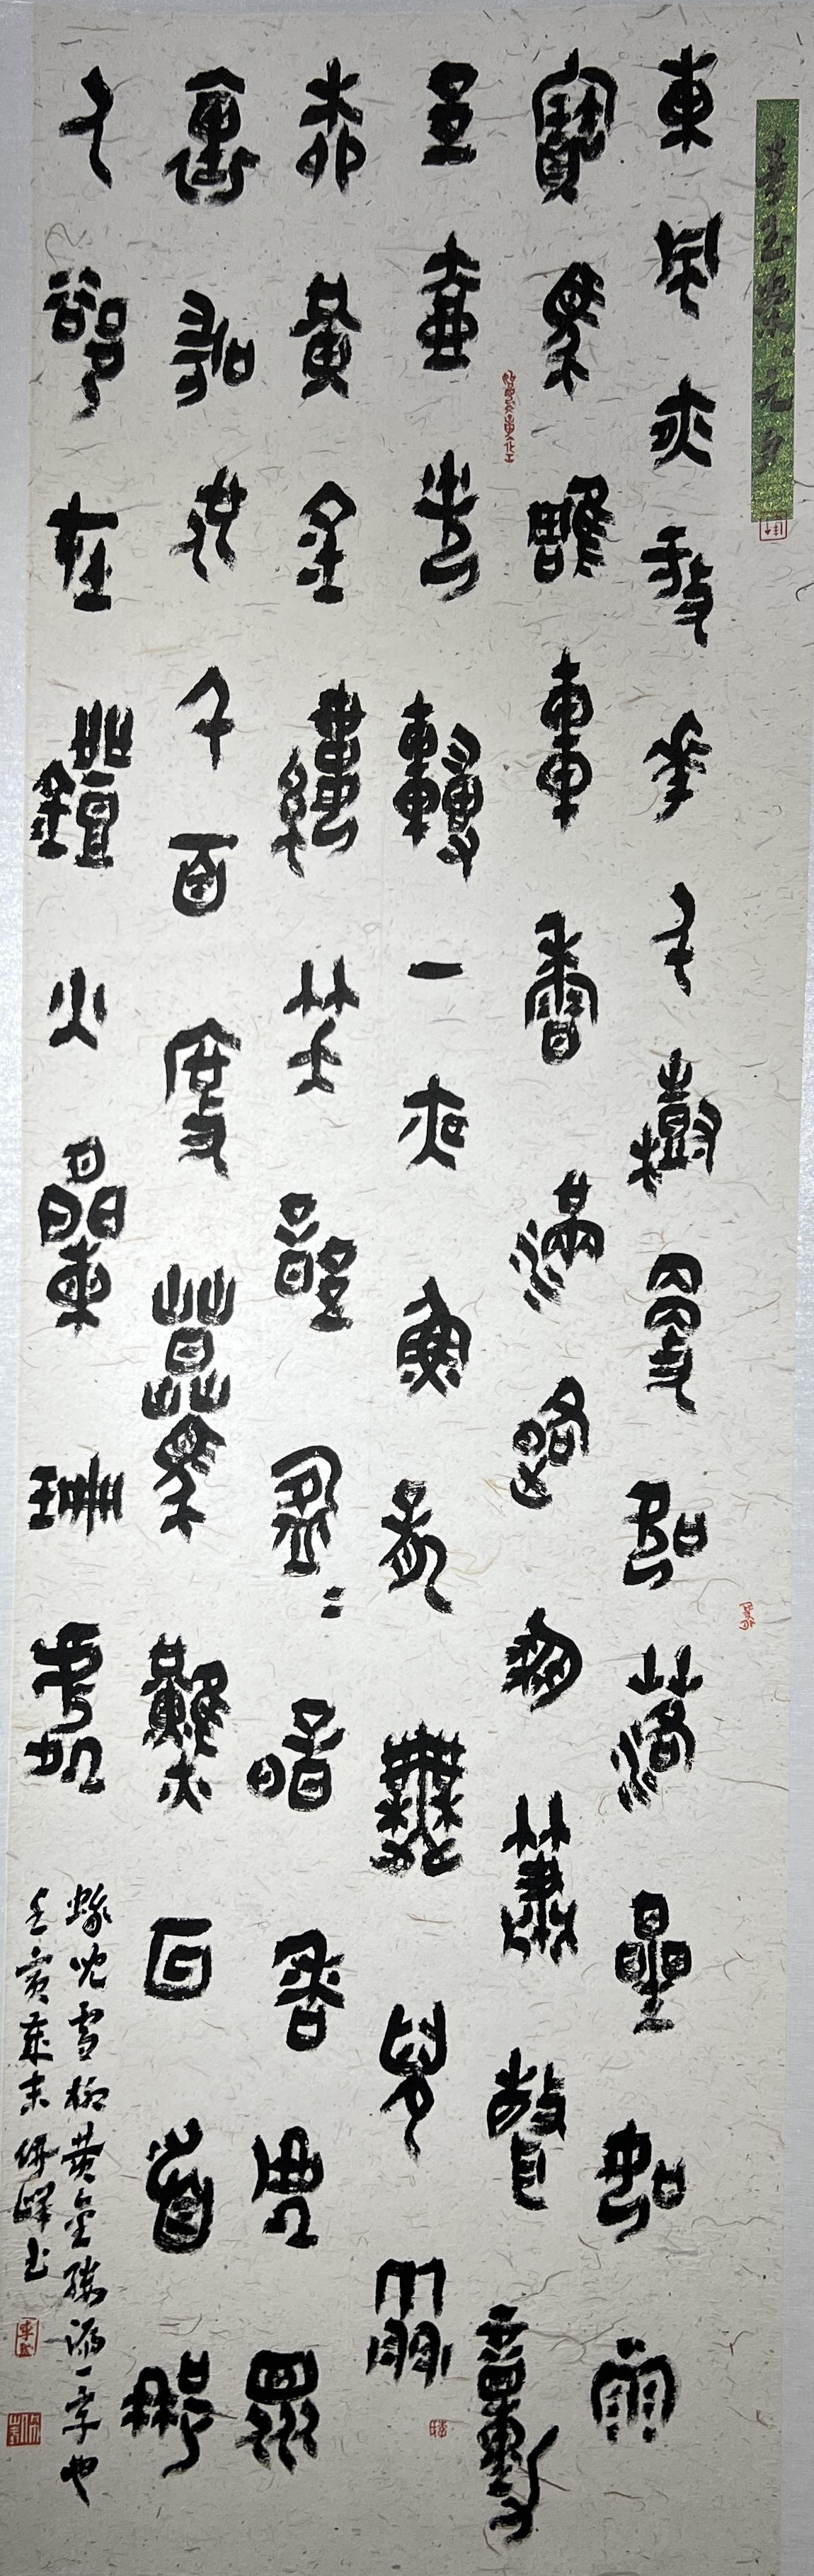 青玉案·元夕
東風夜放華千樹更吹落星如雨
寶馬雕車香滿路鳳簫聲動
玉壺光轉一夜魚龍舞兒雪
柳黃金縷笑語盈盈暗香去眾
裏尋他千百度驀然回首那
人卻在燈火闌珊處
蛾兒雪柳黃金縷漏一字也
壬寅歲末